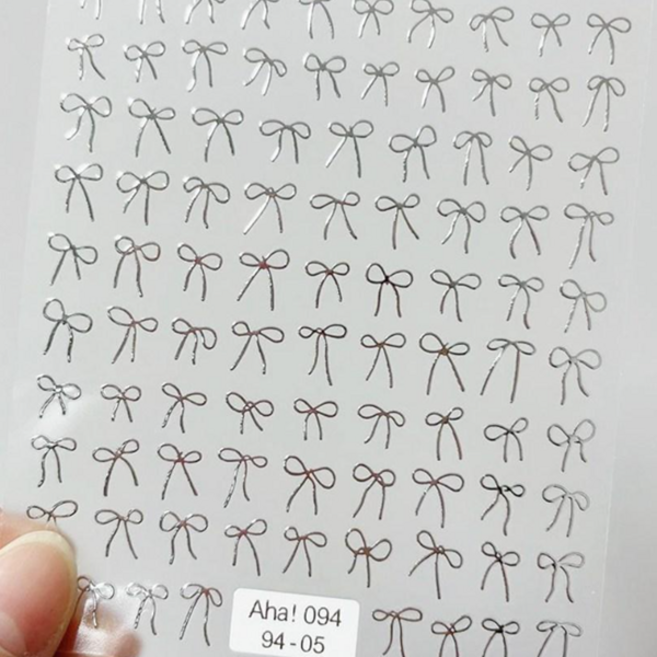 Aha! 094
94-05